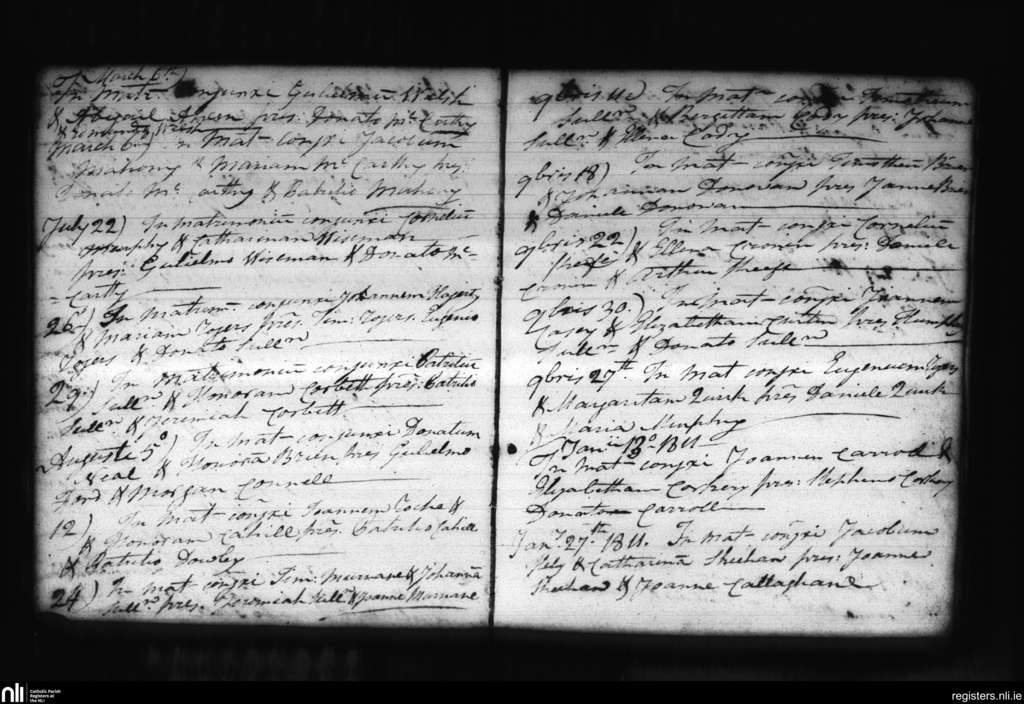 March 6th)
In Mat: conjunxi Gulielmum Walsh
& Abigail Ahern pres: Donato Mc Carthy
& Edmundo Walsh
March 6th) In Mat- conjxi Jacobum
Mahony & Mariam Mc Carthy pres:
Donato Mc Carthy & Patritio Mahony
July 22) In matrimoniū conjunxi Corneliū
Murphy & Catharinam Wiseman
pres: Gulielmo Wiseman & Donato Mc
= Carthy
26o) In Matrim: conjunxi Johannem Hagerty
& Mariam Togers pres: Tim: Togers. Eugenio
Togers & Donato Sulln
29o) In Matrimoniū conjunxi Patritiū
Sulln & Honoram Corbett pres: Patritio
Sulln & Jeremiah Corbett
Augusti 5o) In Mat- conjunxi Donatum
Neal & Honorā Brien pres Gulielmo
Ford & Morgan Connell
12) In Mat- conjxi Joannem Roche &
& Honoram Cahill pres: Patritio Cahill
& Patritio Dowley
24) In Mat conjxi Tim: Murnane & Johannā
Sulln pres: Jeremiah Sulln & Joanne Murnane
9bris 11o) In Mat- conjxi
Sulln & Brigittam Cody pres: Johanne
Sulln & Ellena Cody
9bris 18) In Mat- conjxi Timotheū Brien
& Johannam Donovan pres Joanne Brien
& Daniele Donovan
9bris 22) In Mat- conjxi Corneliū
Keefe & Ellena Cronen pres: Daniele
Cronen & Arthur Keefe
9bris 30.) In Mat- conjxi Joannem
Casey & Elizabetham Curtin pres: Humphry
Sulln & Donato Sulln
9bris 27th In Mat conjxi Eugenium Togers
& Margaritam Quirk pres Daniele Quirk
& Maria Murphy
Janii 13o 1811
In Mat- conjxi Joannem Carroll &
Elizabetham Corkery pres: Stephano Corkery
Donato Carroll
Jany 27th 1811. In Mat- conjxi Jacobum
Kely & Catharinā Sheehan pres: Joanne
Sheehan & Joanne Callaghane
nli
Catholic Parish
Registers at
the NLI
registers.nli.ie